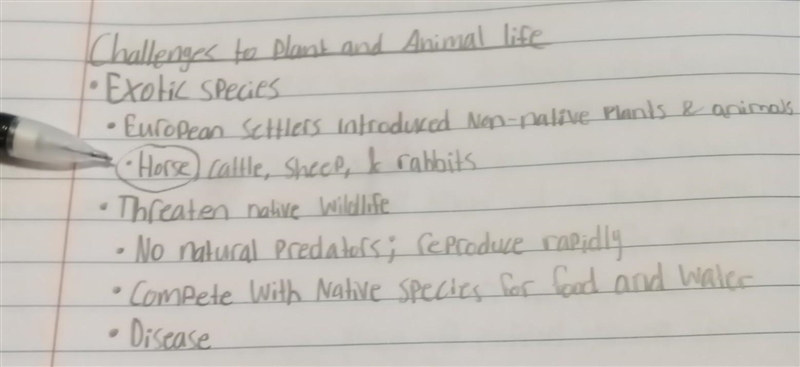 Challenges to Plant and Animal life
• Exotic species
• European Settlers introduced Non-native Plants & animals
• Horse, cattle, sheep, & rabbits
• Threaten native wildlife
• No natural predators; reproduce rapidly
• Compete with Native species for food and water
• Disease